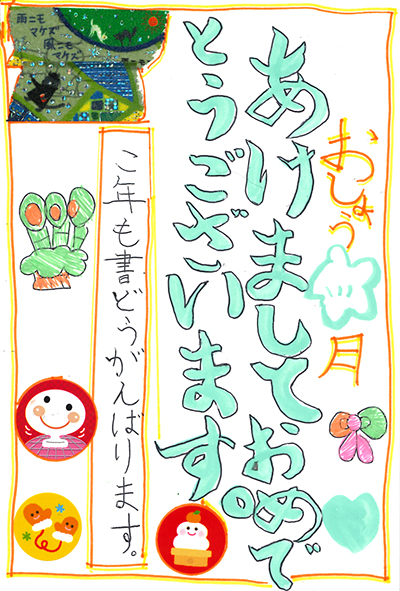 おしょう月
あけましておめで
とうございます。
こ年も書どうがんばります。
雨ニモ
マケズ
風ニモ
マケズ